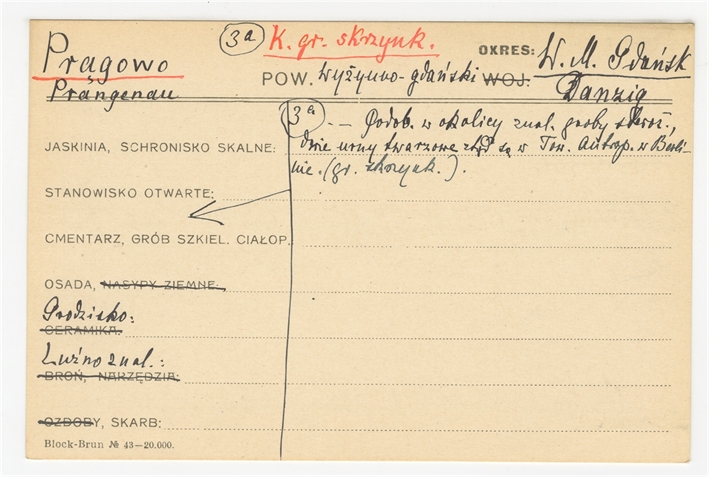 Pragowo
Prangenau
3a K. gr. skrzynk.
OKRES: W. M. Gdańsk
POW. Wyżynno-gdański WOJ: Danzig
3a — Podob. w okolicy znal. groby skrz.,
JASKINIA, SCHRONISKO SKALNE: dwie urny twarzowe są w Tow. Antrop. w Berli-
nie. (gr. skrzynk.).
STANOWISKO OTWARTE:
CMENTARZ, GRÓB SZKIEL. CIAŁOP.
OSADA, NASYPY ZIEMNE:
Grodzisko:
CERAMIKA:
Luźno znal.:
BROŃ, NARZĘDZIA:
OZDOBY, SKARB:
Block-Brun № 43—20.000.